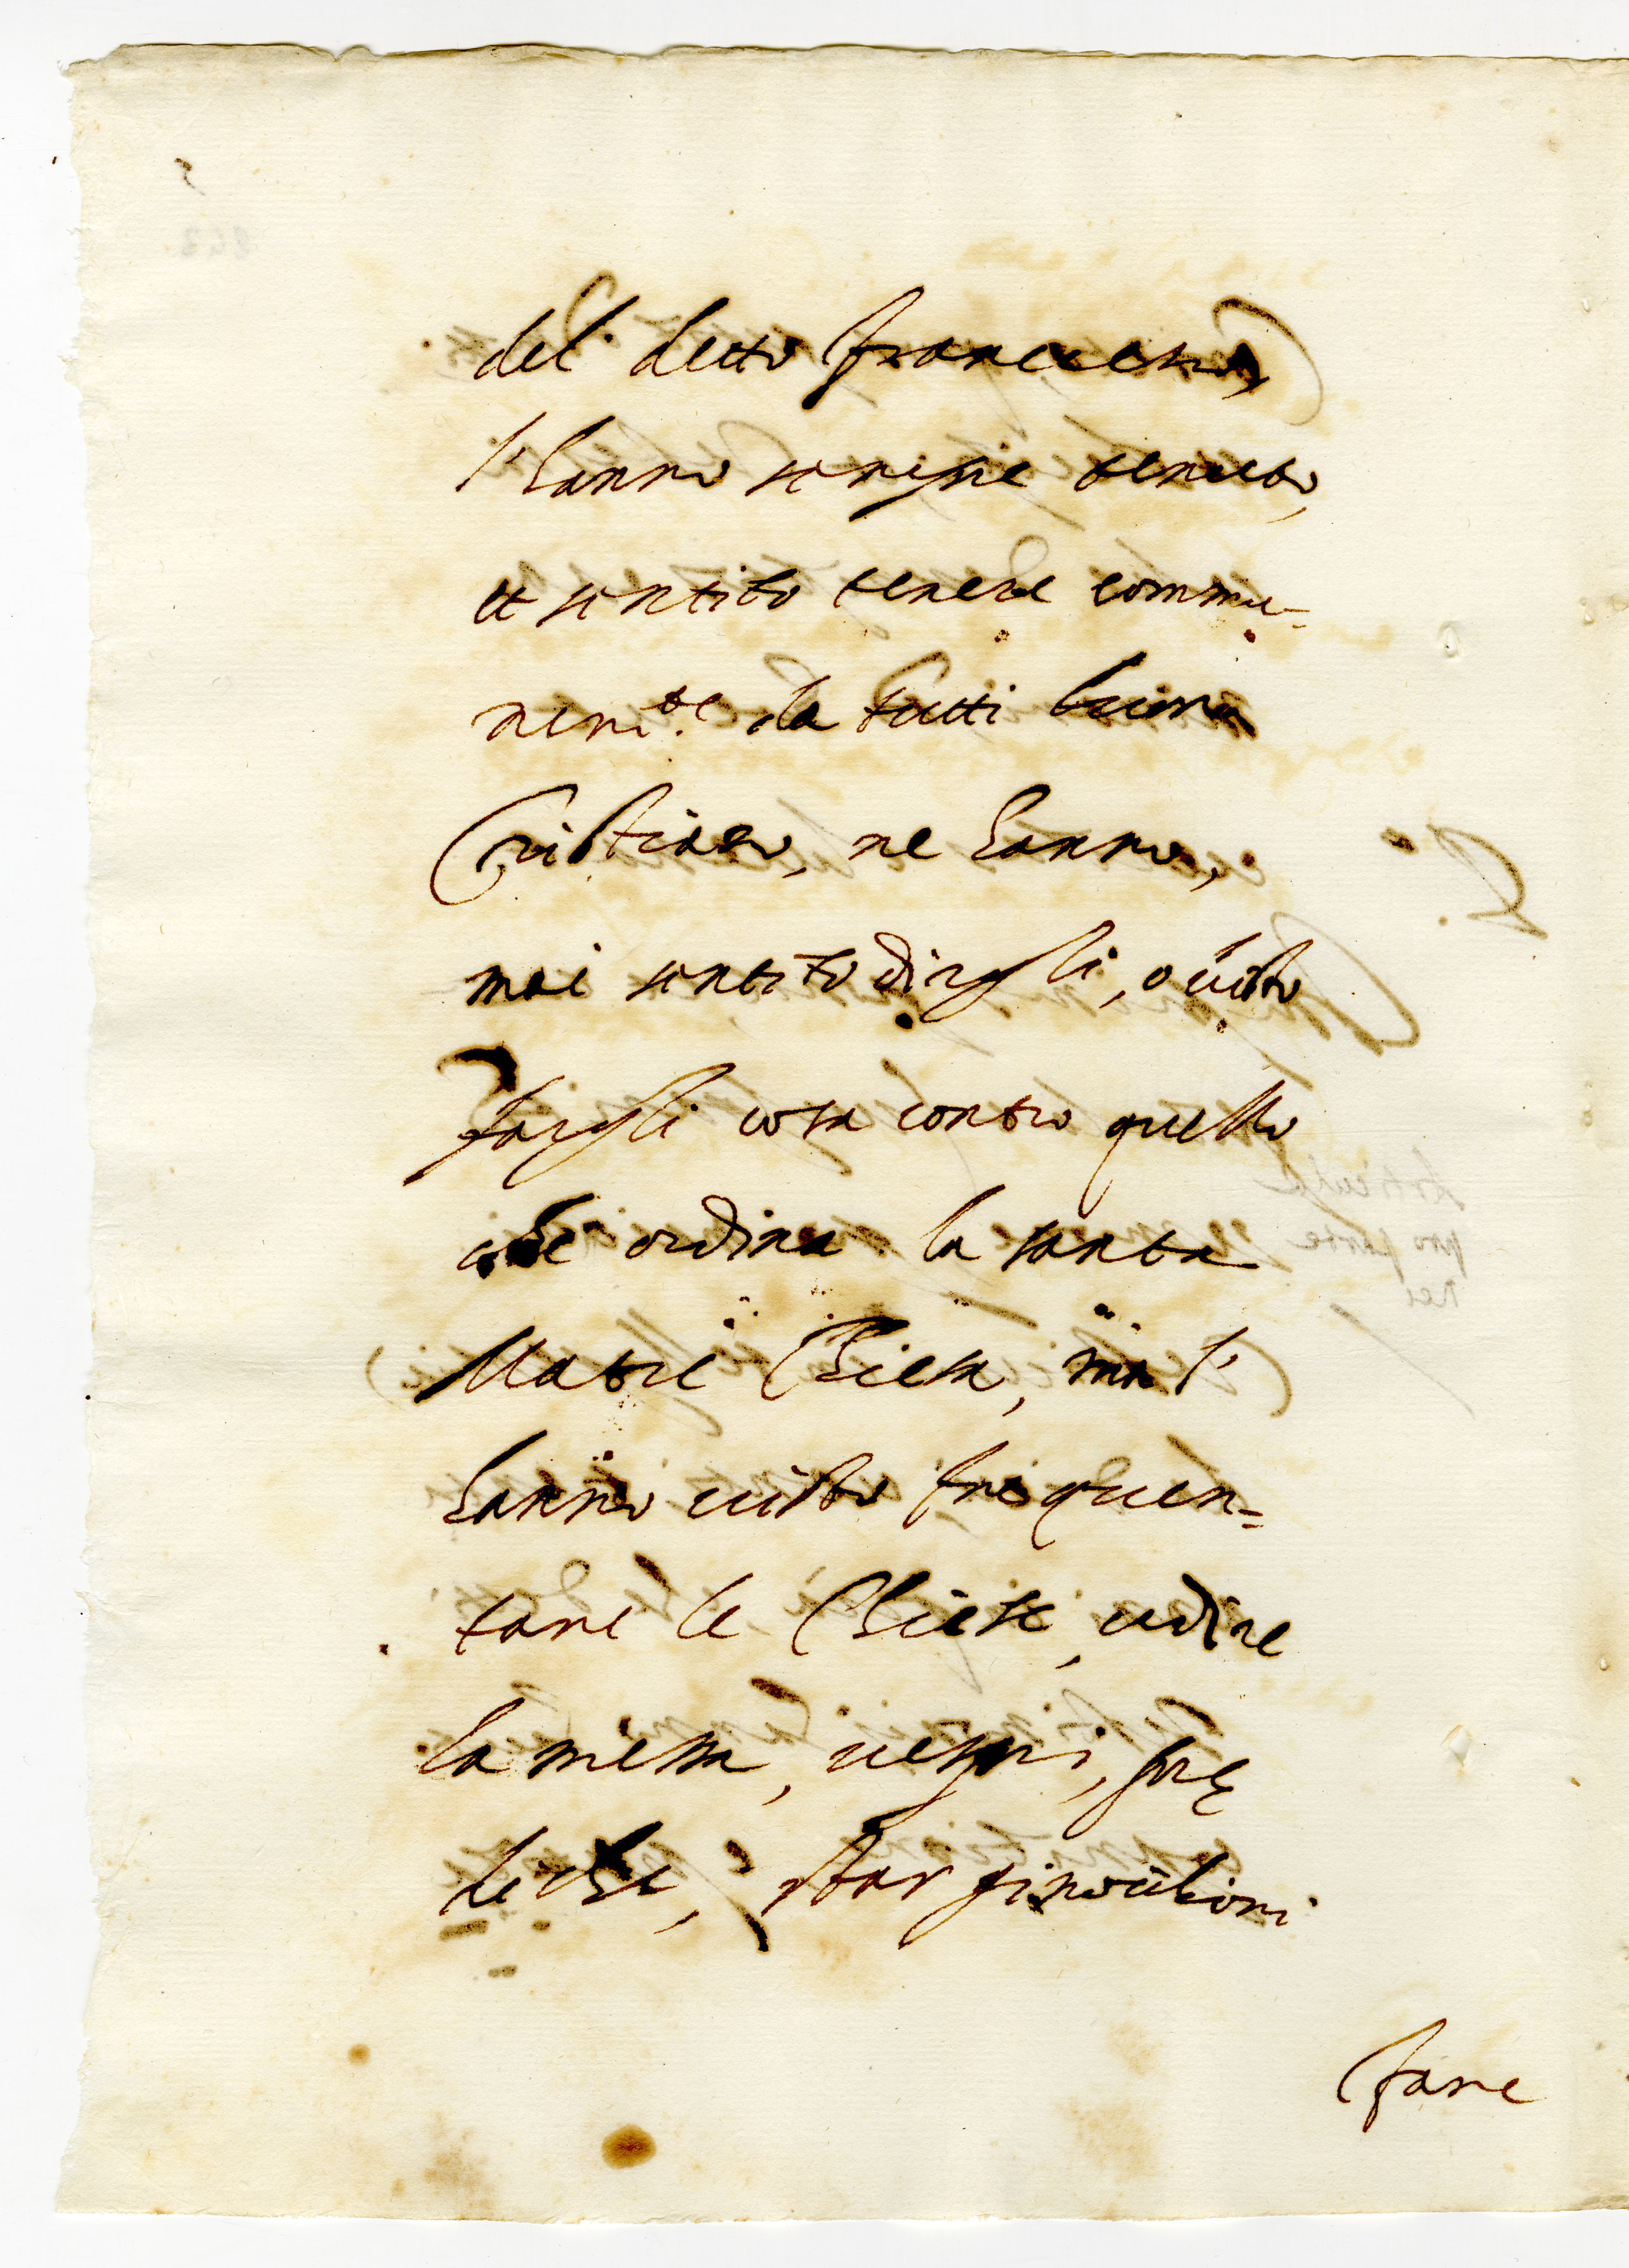 del detto francesco,
l'hanno sempre tenuto,
et sentito tenere commu=
nem.te da tutti buon
Cristiano, ne hanno,
mai sentito dirgli, o visto
fargli cosa contro quello
che ordina la santa
Matre Chiesa, ma l'
hanno visto frequen=
tare le Chiese, udire
la messa, vespri, pre
diche, star ginocchioni
fare